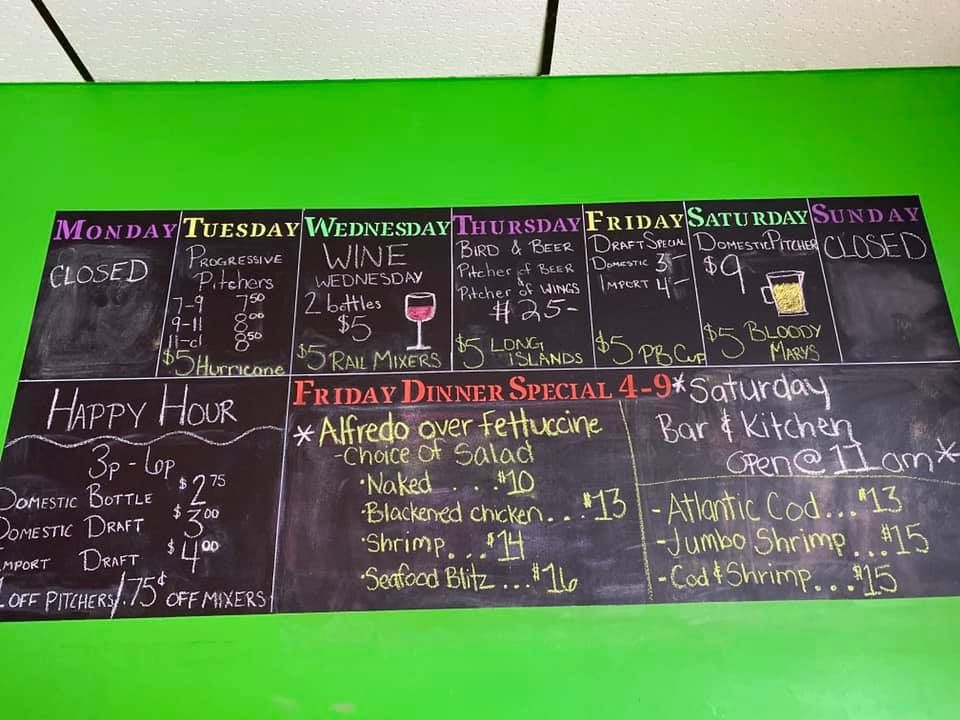 MONDAY
CLOSED
TUESDAY
PROGRESSIVE
Pitchers
7-9 7⁵⁰
9-11 8⁰⁰
11-cl 8⁵⁰
$5 Hurricane
WEDNESDAY
WINE
WEDNESDAY
2 bottles
$5
$5 RAIL MIXERS
THURSDAY
BIRD & BEER
Pitcher of BEER
Pitcher of WINGS
$25-
$5 LONG
ISLANDS
FRIDAY
DRAFT SPECIAL
DOMESTIC 3-
IMPORT 4-
$5 PB CUP
SATURDAY
DOMESTIC PITCHER
$9
$5 BLOODY
MARYS
SUNDAY
CLOSED
HAPPY HOUR
3p-6p
DOMESTIC BOTTLE $2⁷⁵
DOMESTIC DRAFT $3⁰⁰
IMPORT DRAFT $4⁰⁰
OFF PITCHERS/.75¢ OFF MIXERS
FRIDAY DINNER SPECIAL 4-9
*Alfredo over fettuccine
-Choice of Salad
•Naked...$10
•Blackened chicken...$13
•Shrimp...$14
•Seafood Blitz...$16
*Saturday
Bar & Kitchen
open@11am*
-Atlantic Cod...$13
-Jumbo Shrimp...$15
-Cod & Shrimp...$15